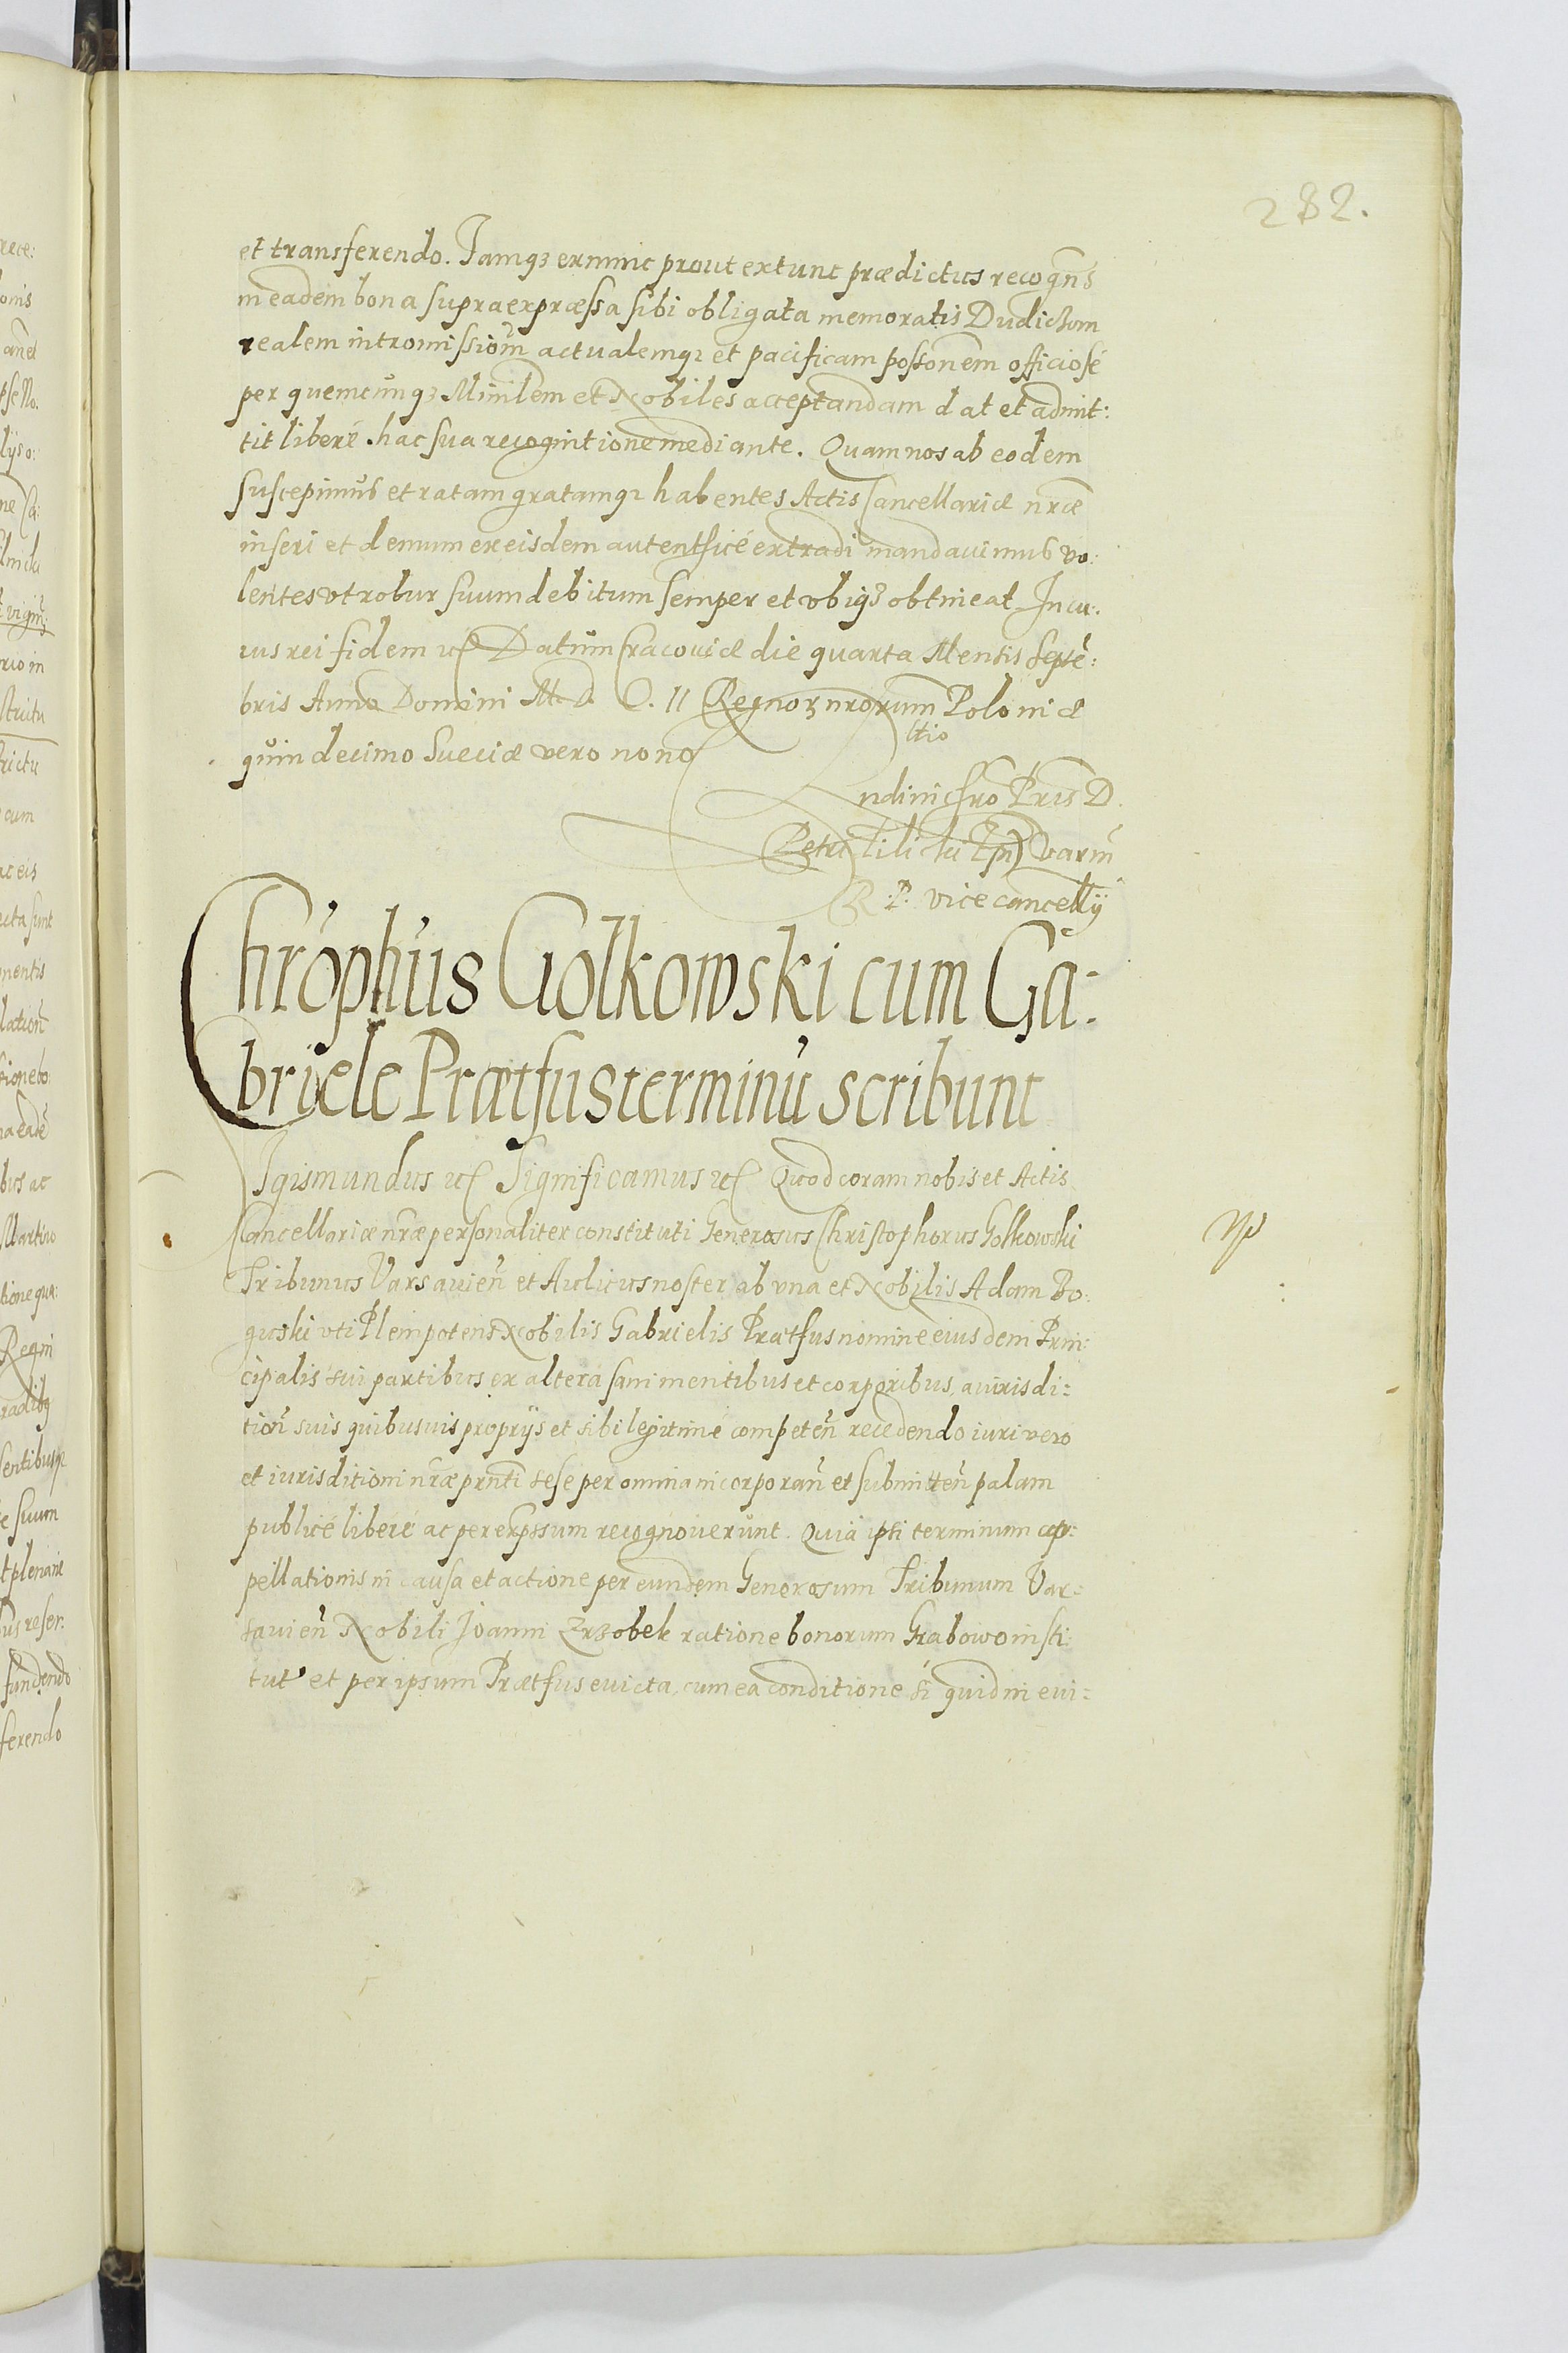 282.
et transferendo. Iamq3 exnunc prout extunc prædictus recogñs
in eadem bona supraexpræssa sibi obligata memoratis Dudichom
realem intromissiom̄ actualemq3 et pacificam possōnem officiosé
per quemcunq3 Minilem et Nobiles acceptandam dat et admit:
tit liberé hac sua recognitione mediante. Quam nos ab eodem
suscepimus et ratam gratamq3 habentes Actis Cancellariæ nr̄æ
inseri et demum ex eisdem autenthicé extradi mandauimus vo:
lentes vt robur suum debitum semper et vbiq3 obtineat. In cu:
ius rei fidem etc Datum Cracouiæ die quarta Mensis Septē:
bris Anno Domini M. D. C. II Regnor3 nrōrum Poloniæ
quindecimo Sueciæ vero nono
ltio
ndini Chro Pris D.
Petri Tilicki Epī Varm̄
R. P. vicecancellÿ
Chrophus Golkowski cum Ga:
briele Prætfus terminū scribunt
Sigismundus etc Significamus etc Quod coram nobis et Actis
Cancellariæ nr̄æ personaliter constituti Generosus Christophorus Golkowski
Tribunus Varsauien̄ et Aulicus noster ab vna et Nobilis Adam Bo:
guski vti Plenipotens Nobilis Gabrielis Prætfus nomine eiusdem Prin:
cipalis sui partibus ex altera sani mentibus et corporibus, a iurisdi:
tion̄ suis quibusuis proprÿs et sibi legitimé competen̄ recedendo iuri vero
et iurisditioni nr̄æ prn̄ti sese per omnia incorporan̄ et submitten̄ palam
publicé liberé ac per exp̄ssum recognouerunt. Quia ipsi terminum ap:
pellationis in causa et actione per eundem Generosum Tribunum Var:
sauien̄ Nobili Joanni Zrzobek ratione bonorum Grabowo insti:
tut' et per ipsum Prætfus euicta, cum ea conditione si quid in eui: